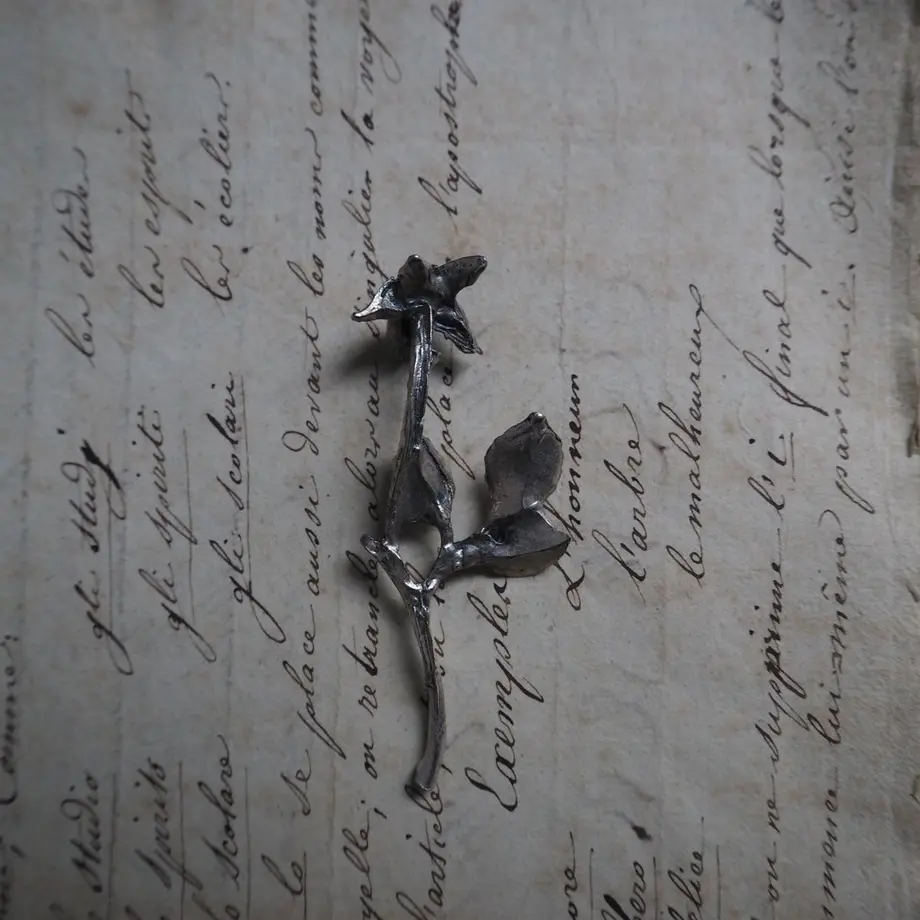 Comme:
studio gli studj les études
gli spiriti les esprits
scolare gli scolari les écoliers.
le se place aussi devant les noms comm
on retranche alors au singulier la voye
l'article, place l'apostrophe
Exemples
ore L'honneur
bero l'arbre
elice le malheureux
on ne supprime l'i final que lorsque le
mmence lui-même par un i. Ainsi l'on